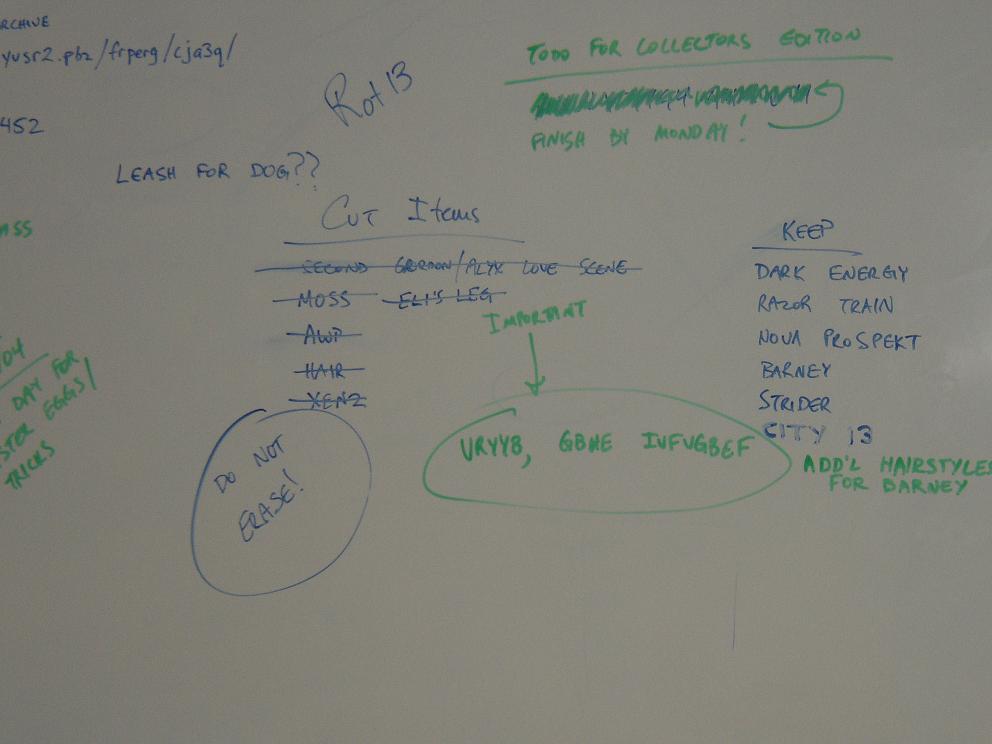 ARCHIVE
yusr2.pbz/frperg/cja3q/
452
Rot 13
LEASH FOR DOG??
TODO FOR COLLECTORS EDITION
FINISH BY MONDAY!
Cut Items
SECOND GORDON/ALYX LOVE SCENE
MOSS ELI'S LEG
AWP
HAIR
XENZ
KEEP
DARK ENERGY
RAZOR TRAIN
NOVA PROSPEKT
BARNEY
STRIDER
CITY 13
ADD'L HAIRSTYLES
FOR BARNEY
IMPORTANT
URYYB, GBHE IVFVGBEF
DO NOT
ERASE!
DAY FOR
EGGS/
TRICKS